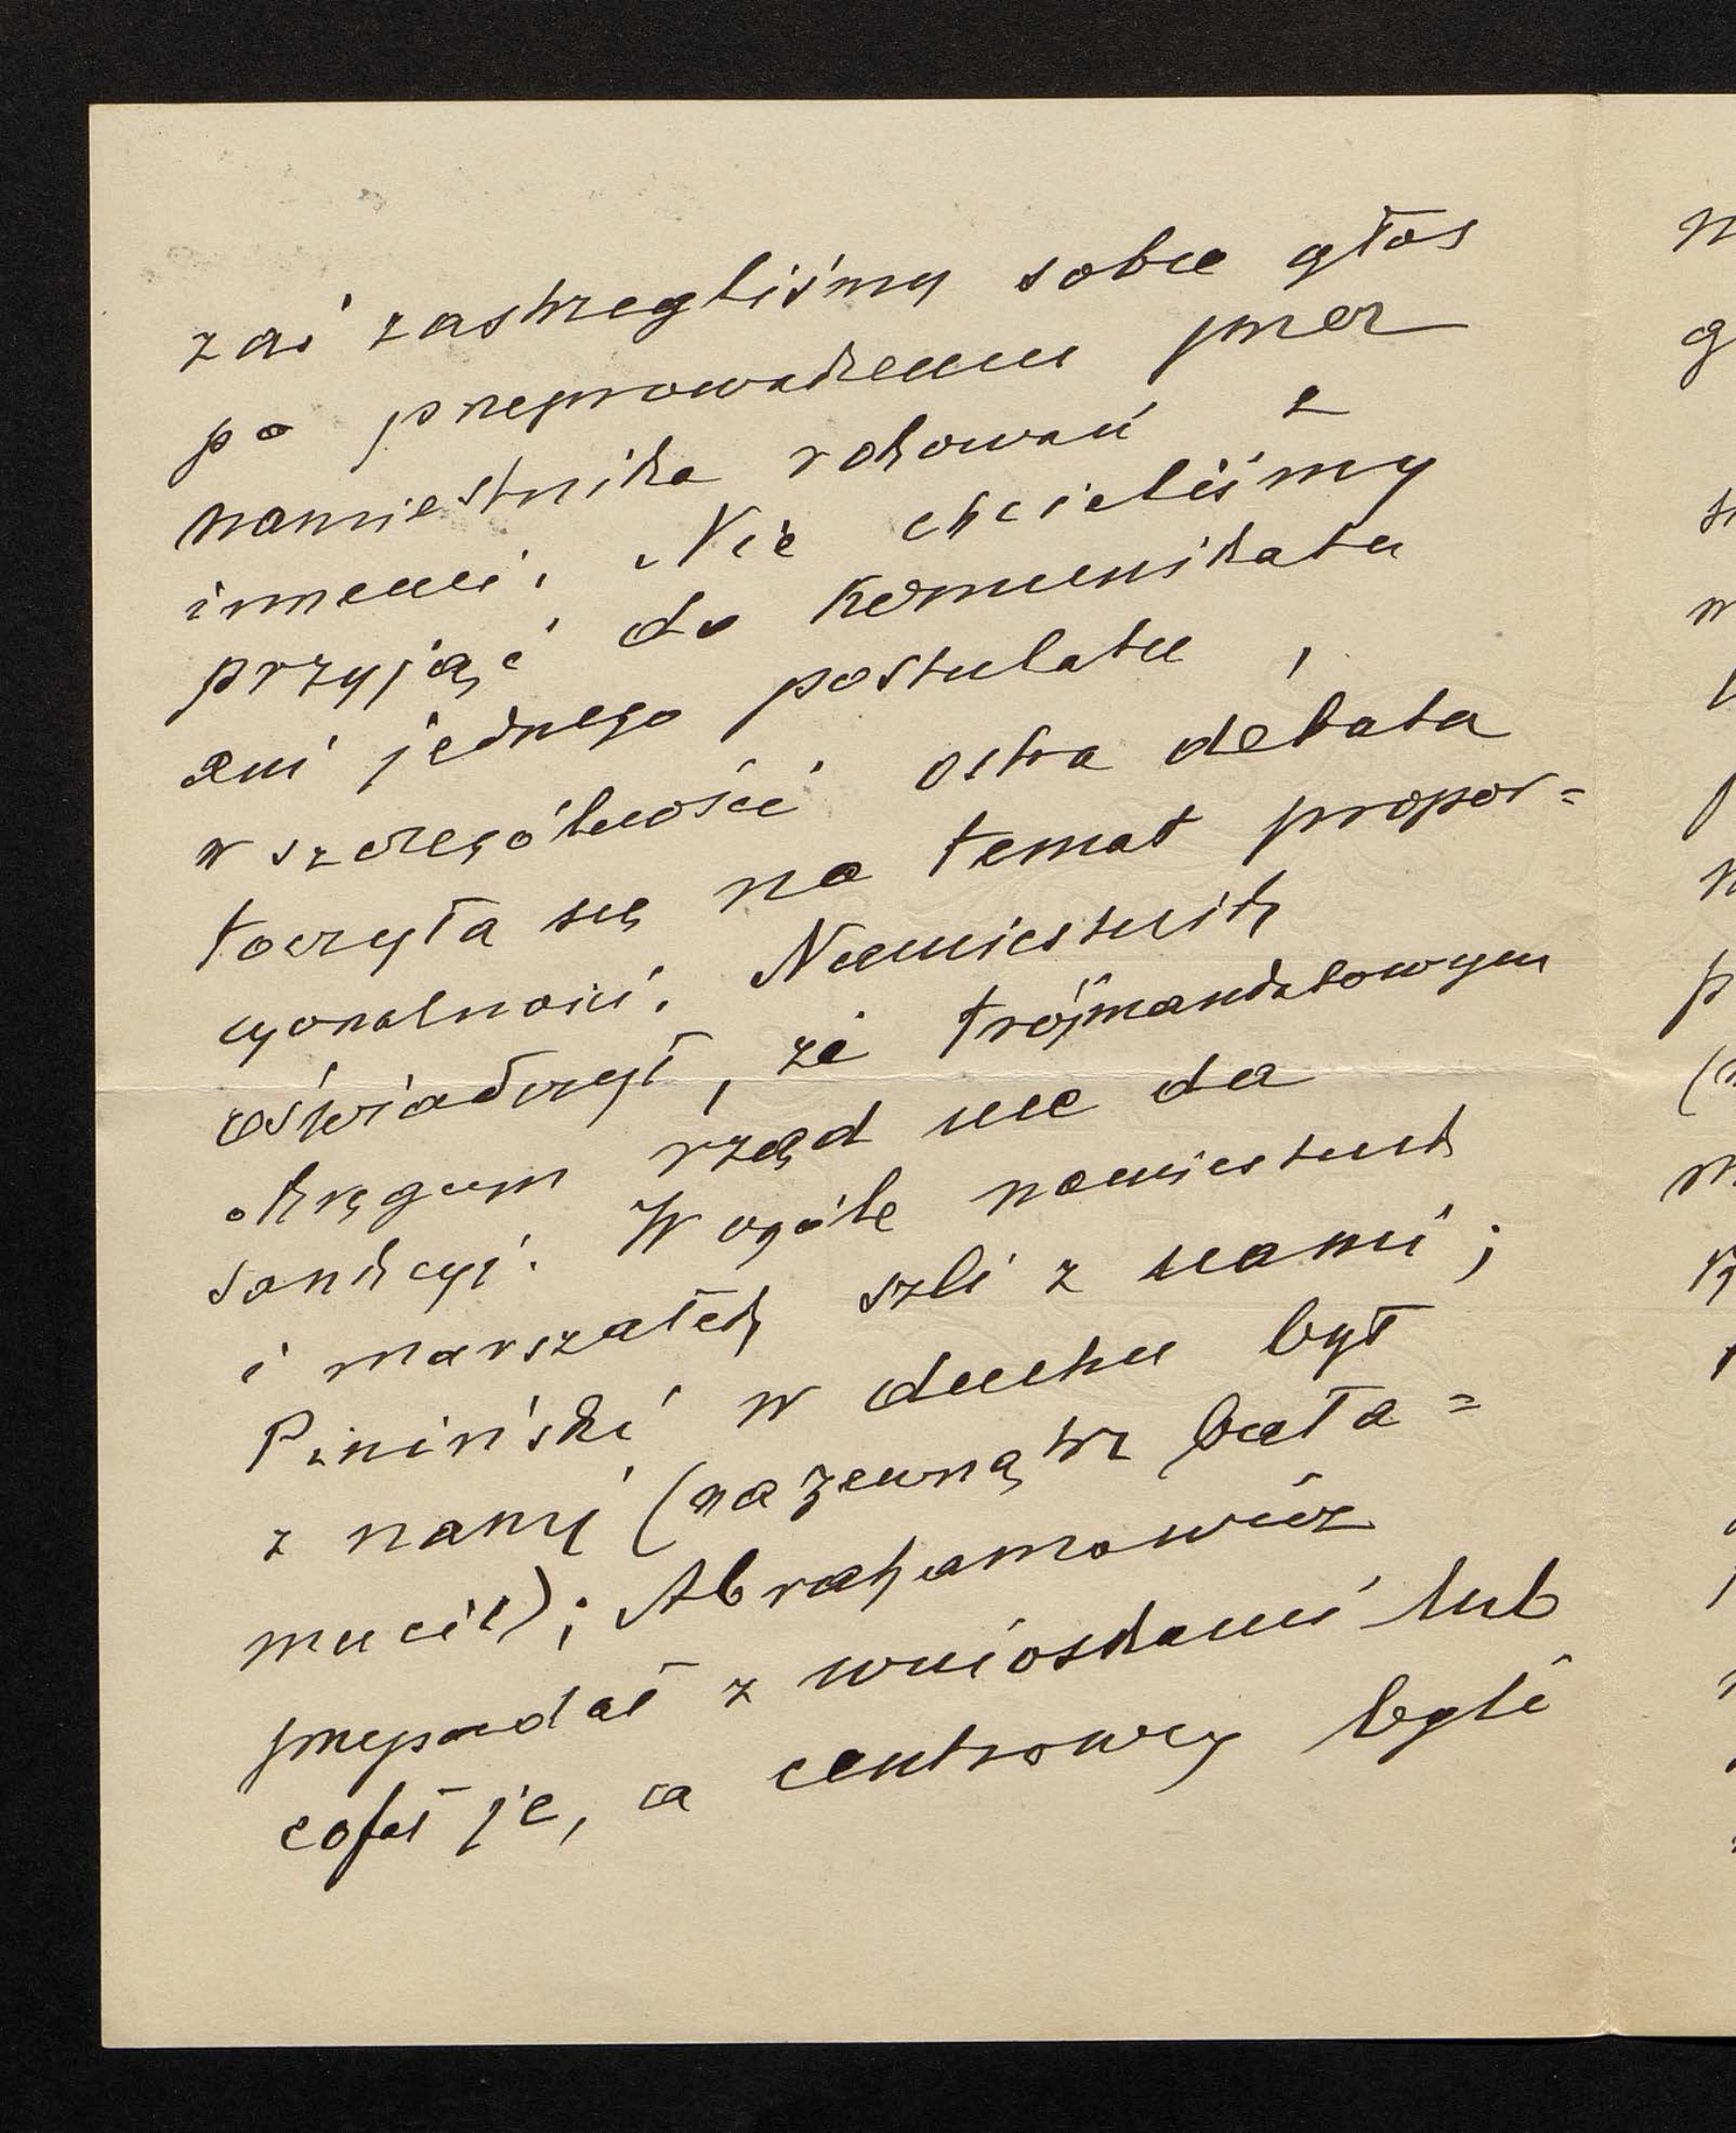 zaś zastrzegliśmy sobie głos
po przeprowadzeniu przez
namiestnika rokowań z
innemi. Nie chcieliśmy
przyjąć do komunikatu
ani jednego postulatu,
w szczególności ostra debata
toczyła się na temat propor=
cyonalności. Namiestnik
oświadczył, że trójmandatowym
okręgom rząd nie da
sankcyi. W ogóle namiestnik
i marszałek szli z nami;
Piniński w duchu był
z nami (na zewnątrz bała=
mucił); Abrahamowicz
przepadał z wnioskami lub
cofał je, a centrowcy byli